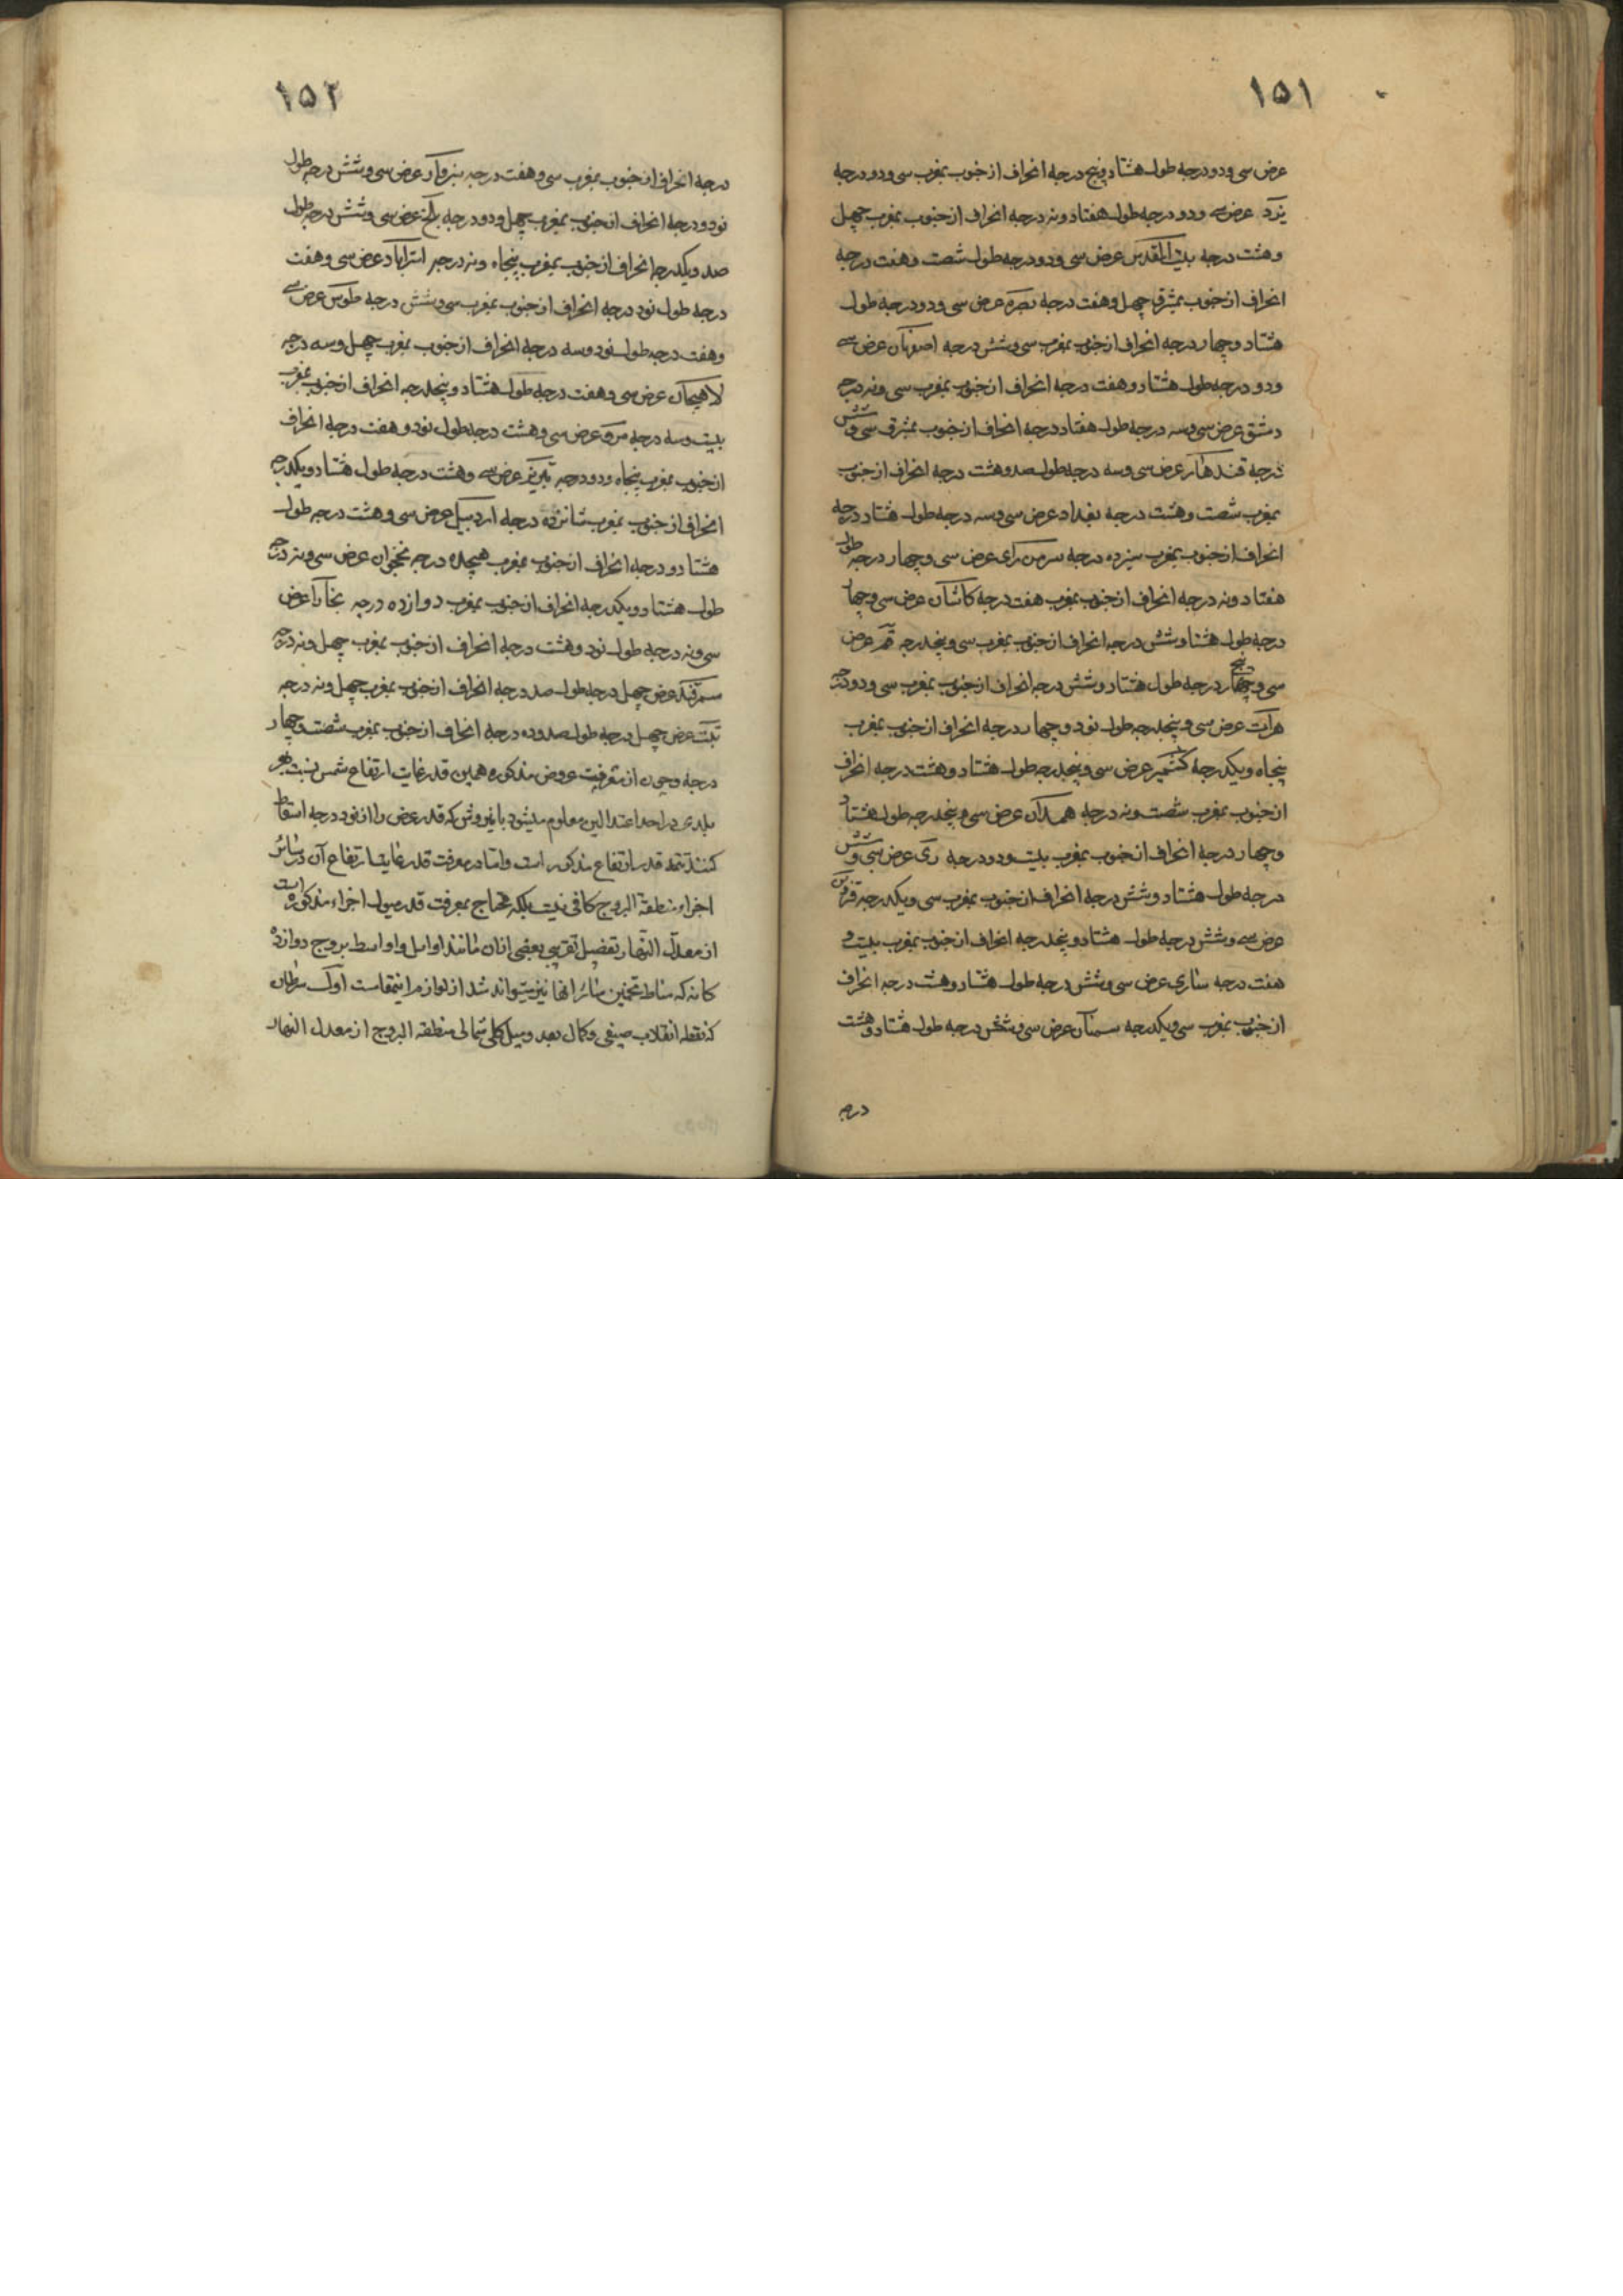 ١٥١
عرض سی و دو درجه طول هشتاد و پنج درجه انحراف از جنوب بمغرب سی و دو درجه
یزد عرض سی و دو درجه طول هفتاد و نه درجه انحراف از جنوب بمغرب چهل
و هشت درجه بیت المقدس عرض سی و دو درجه طول شصت و هفت درجه
انحراف از جنوب بمشرق چهل و هفت درجه بصره عرض سی و دو درجه طول
هشتاد و چهار درجه انحراف از جنوب بمغرب سی و شش درجه اصفهان عرض سی
و دو درجه طول هشتاد و هفت درجه انحراف از جنوب بمغرب سی و نه درجه
دمشق عرض سی و سه درجه طول هفتاد درجه انحراف از جنوب بمشرق سی و شش
درجه قندهار عرض سی و سه درجه طول صد و هشت درجه انحراف از جنوب
بمغرب شصت و هشت درجه بغداد عرض سی و سه درجه طول هشتاد درجه
انحراف از جنوب بمغرب سیزده درجه سر من رای عرض سی و چهار درجه طول
هفتاد و نه درجه انحراف از جنوب بمغرب هفت درجه کاشان عرض سی و چهار
درجه طول هشتاد و شش درجه انحراف از جنوب بمغرب سی و پنجدرجه قم عرض
سی و چهار درجه طول هشتاد و شش درجه انحراف از جنوب بمغرب سی و دو درجه
هرات عرض سی و پنجدرجه طول نود و چهار درجه انحراف از جنوب بمغرب
پنجاه و یکدرجه کشمیر عرض سی و پنجدرجه طول هشتاد و هشت درجه انحراف
از جنوب بمغرب شصت و نه درجه همدان عرض سی و پنجدرجه طول هشتاد
و چهار درجه انحراف از جنوب بمغرب بیست و دو درجه ری عرض سی و شش
درجه طول هشتاد و شش درجه انحراف از جنوب بمغرب سی و یکدرجه قزوین
عرض سی و شش درجه طول هشتاد و پنجدرجه انحراف از جنوب بمغرب بیست و
هفت درجه ساری عرض سی و شش درجه طول هشتاد و هشت درجه انحراف
از جنوب بمغرب سی و یکدرجه سمنان عرض سی و شش درجه طول هشتاد و هشت
درجه
١٥٢
درجه انحراف از جنوب بمغرب سی و هفت درجه سبزوار عرض سی و شش درجه طول
نود و درجه انحراف از جنوب بمغرب چهل و دو درجه بلخ عرض سی و شش درجه طول
صد و یکدرجه انحراف از جنوب بمغرب پنجاه و نه درجه استراباد عرض سی و هفت
درجه طول نود درجه انحراف از جنوب بمغرب سی و شش درجه طوس عرض سی
و هفت درجه طول نود و سه درجه انحراف از جنوب بمغرب چهل و سه درجه
لاهیجان عرض سی و هفت درجه طول هشتاد و پنجدرجه انحراف از جنوب بمغرب
بیست و سه درجه مرو عرض سی و هشت درجه طول نود و هفت درجه انحراف
از جنوب بمغرب پنجاه و دو درجه تبریز عرض سی و هشت درجه طول هشتاد و یکدرجه
انحراف از جنوب بمغرب شانزده درجه اردبیل عرض سی و هشت درجه طول
هشتاد و درجه انحراف از جنوب بمغرب هیجده درجه نخجوان عرض سی و نه درجه
طول هشتاد و یکدرجه انحراف از جنوب بمغرب دوازده درجه بخارا عرض
سی و نه درجه طول نود و هشت درجه انحراف از جنوب بمغرب چهل و نه درجه
سمرقند عرض چهل درجه طول صد درجه انحراف از جنوب بمغرب چهل و نه درجه
تبت عرض چهل درجه طول صد و ده درجه انحراف از جنوب بمغرب شصت و چهار
درجه و چون از معرفت عروض مذکوره همین قدر غایت ارتفاع شمس نسبت بهر
بلدی در احد اعتدالین معلوم میشود باینروش که قدر عرض را از نود درجه اسقاط
کنند تتمه قدر ارتفاع مذکور است و اما در معرفت قدر غایت ارتفاع آن در سائر
اجزاء منطقة البروج کافی نیست بلکه محتاج بمعرفت قدر میول اجزاء مذکوره است
از معدل النهار تفصیل تقریبی بعضی از ان مانند اوایل و اواسط بروج دوازده
کانه که مناط تخمین سائر انها نیز میتواند شد از لوازم اینمقامست اول سرطان
که نقطه انقلاب صیفی و کمال بعد و میل کلی شمالی منطقه البروج از معدل النهار